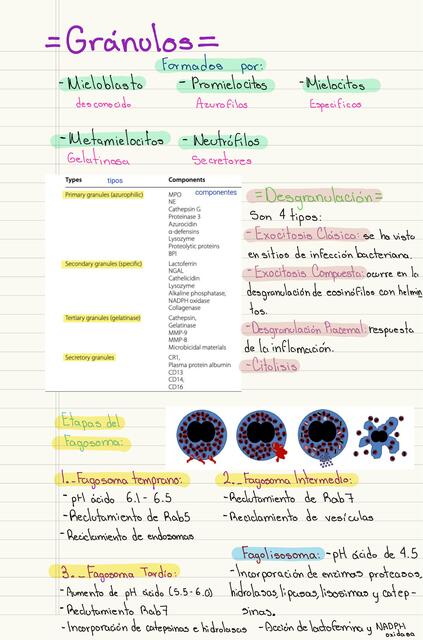 =Gránulos=
Formados por:
-Mieloblasto -Promielocitos -Mielocitos
desconocido Azurofilos Específicos
-Metamielocitos -Neutrófilos
Gelatinasa Secretores
Types tipos Components
Primary granules (azurophilic) MPO componentes
NE
Cathepsin G
Proteinase 3
Azurocidin
α-defensins
Lysozyme
Proteolytic proteins
BPI
Secondary granules (specific) Lactoferrin
NGAL
Cathelicidin
Lysozyme
Alkaline phosphatase,
NADPH oxidase
Collagenase
Tertiary granules (gelatinase) Cathepsin,
Gelatinase
MMP-9
MMP-8
Microbicidal materials
Secretory granules CR1,
Plasma protein albumin
CD13
CD14,
CD16
=Desgranulación=
Son 4 tipos:
-Exocitosis Clásica: se ha visto
en sitios de infección bacteriana.
-Exocitosis Compuesta: ocurre en la
desgranulación de eosinófilos con helmin
tos.
-Desgranulación Piacemal: respuesta
de la inflamación.
-Citolisis
Etapas del
Fagosoma:
1.-Fagosoma temprano:
-pH ácido 6.1-6.5
-Reclutamiento de Rab5
-Reciclamiento de endosomas
2.-Fagosoma Intermedio:
-Reclutamiento de Rab7
-Reciclamiento de vesículas
3.-Fagosoma Tardío:
-Aumento de pH ácido (5.5-6.0)
-Reclutamiento Rab7
-Incorporación de catepsinas e hidrolasas
Fagolisosoma: -pH ácido de 4.5
-Incorporación de enzimas proteasas,
hidrolasas, lipasas, lisosimas y catep-
sinas.
-Acción de lactoferrina y NADPH
oxidasa